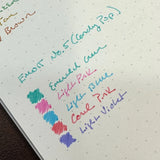 Brown
Enost No. 5 (Candy Pop)
Emerald Green
Light Pink
Light Blue
Coral Pink
Light Violet